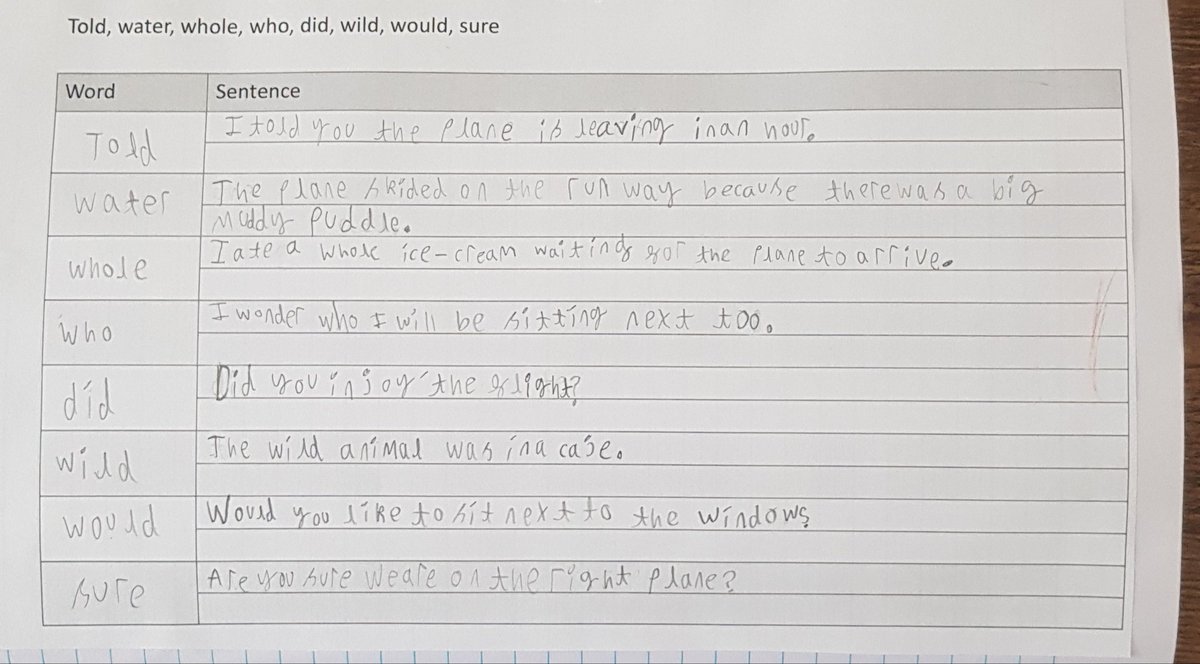 Told, water, whole, who, did, wild, would, sure
Word Sentence
Told I told you the plane is leaving in an hour.
water The plane skided on the run way because there was a big
muddy puddle.
whole I ate a whole ice-cream waiting for the plane to arrive.
who I wonder who I will be sitting next too.
did Did you injoy the flight?
wild The wild animal was in a caje.
would Would you like to sit next to the window?
sure Are you sure we are on the right plane?